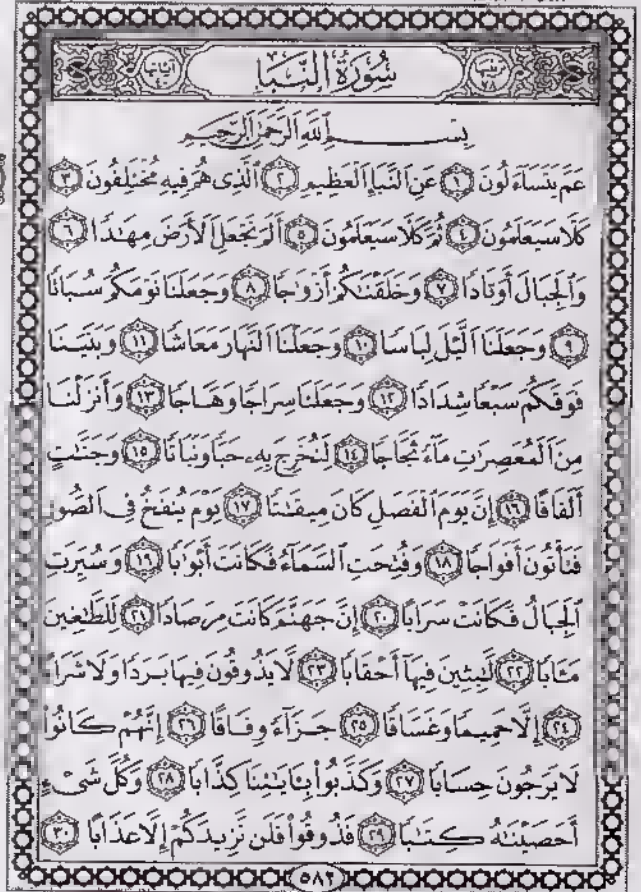 ترتيبها ٧٨ سُورَةُ النَّبَإِ آياتها ٤٠
بِسْمِ اللَّهِ الرَّحْمَٰنِ الرَّحِيمِ
عَمَّ يَتَسَاءَلُونَ ١ عَنِ النَّبَإِ الْعَظِيمِ ٢ الَّذِي هُمْ فِيهِ مُخْتَلِفُونَ ٣
كَلَّا سَيَعْلَمُونَ ٤ ثُمَّ كَلَّا سَيَعْلَمُونَ ٥ أَلَمْ نَجْعَلِ الْأَرْضَ مِهَٰدًا ٦
وَالْجِبَالَ أَوْتَادًا ٧ وَخَلَقْنَٰكُمْ أَزْوَٰجًا ٨ وَجَعَلْنَا نَوْمَكُمْ سُبَاتًا
٩ وَجَعَلْنَا الَّيْلَ لِبَاسًا ١٠ وَجَعَلْنَا النَّهَارَ مَعَاشًا ١١ وَبَنَيْنَا
فَوْقَكُمْ سَبْعًا شِدَادًا ١٢ وَجَعَلْنَا سِرَاجًا وَهَّاجًا ١٣ وَأَنزَلْنَا
مِنَ الْمُعْصِرَٰتِ مَآءً ثَجَّاجًا ١٤ لِّنُخْرِجَ بِهِۦ حَبًّا وَنَبَاتًا ١٥ وَجَنَّٰتٍ
أَلْفَافًا ١٦ إِنَّ يَوْمَ الْفَصْلِ كَانَ مِيقَٰتًا ١٧ يَوْمَ يُنفَخُ فِي الصُّورِ
فَتَأْتُونَ أَفْوَاجًا ١٨ وَفُتِحَتِ السَّمَآءُ فَكَانَتْ أَبْوَٰبًا ١٩ وَسُيِّرَتِ
الْجِبَالُ فَكَانَتْ سَرَابًا ٢٠ إِنَّ جَهَنَّمَ كَانَتْ مِرْصَادًا ٢١ لِّلطَّٰغِينَ
مَـَٔابًا ٢٢ لَّٰبِثِينَ فِيهَآ أَحْقَابًا ٢٣ لَّا يَذُوقُونَ فِيهَا بَرْدًا وَلَا شَرَابًا
٢٤ إِلَّا حَمِيمًا وَغَسَّاقًا ٢٥ جَزَآءً وِفَاقًا ٢٦ إِنَّهُمْ كَانُوا۟
لَا يَرْجُونَ حِسَابًا ٢٧ وَكَذَّبُوا۟ بِـَٔايَٰتِنَا كِذَّابًا ٢٨ وَكُلَّ شَىْءٍ
أَحْصَيْنَٰهُ كِتَٰبًا ٢٩ فَذُوقُوا۟ فَلَن نَّزِيدَكُمْ إِلَّا عَذَابًا ٣٠
٥٨٢